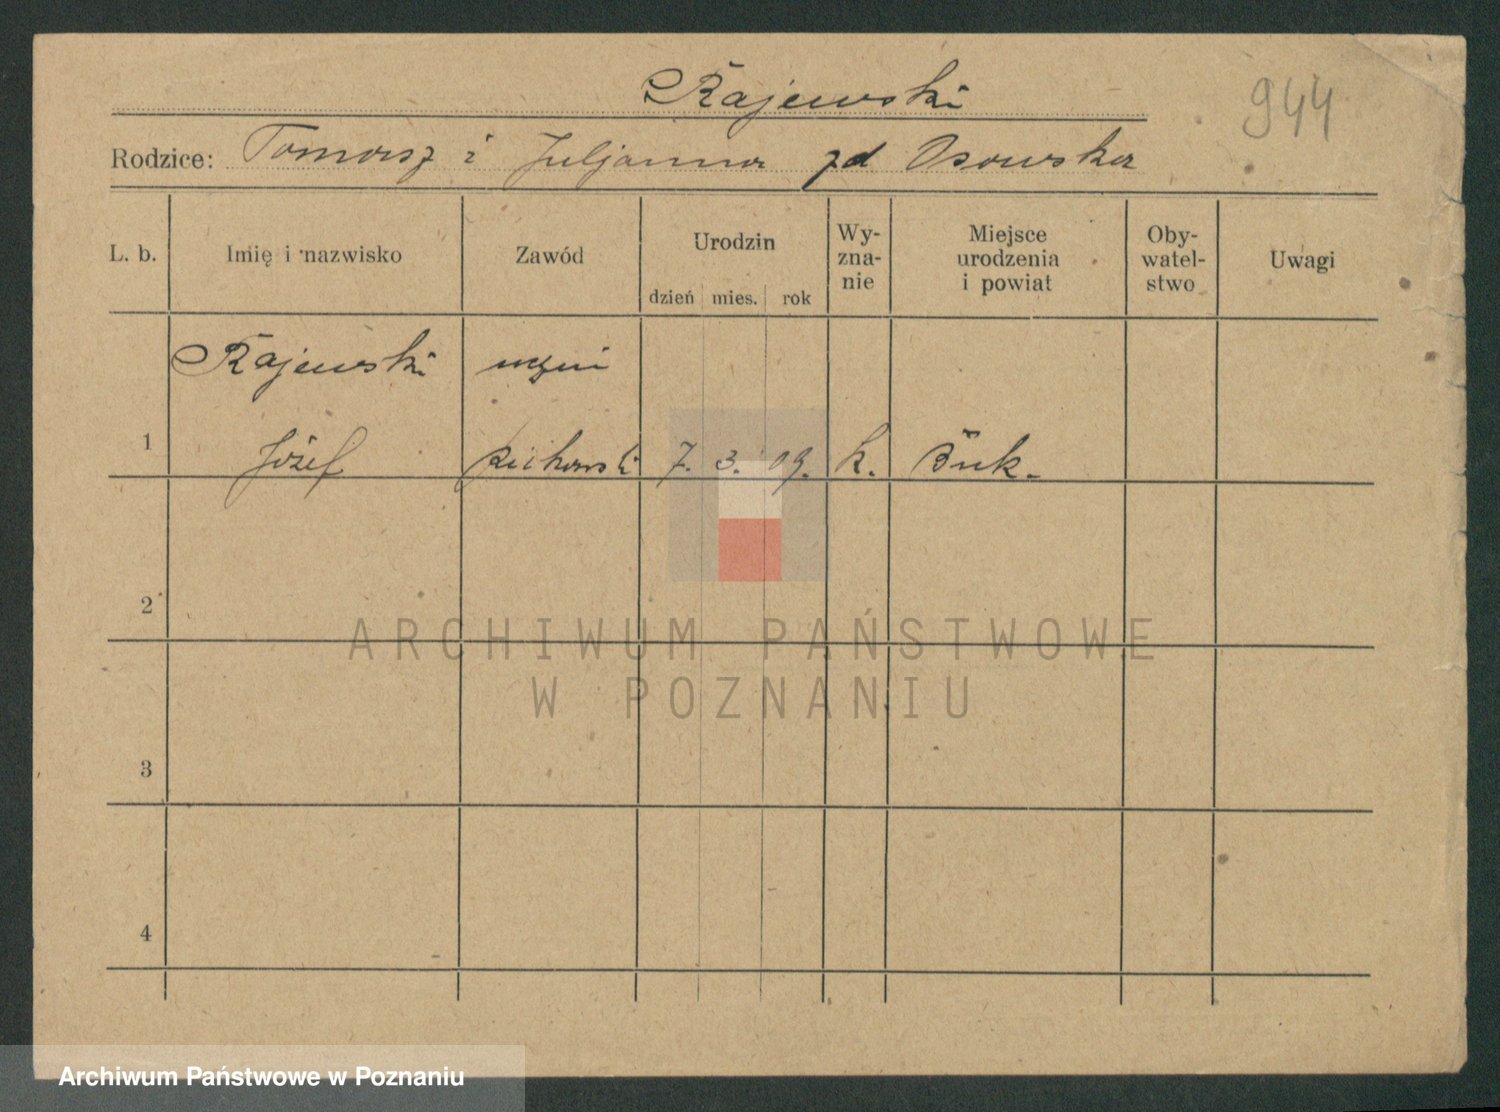 Rajewski
944
Rodzice: Tomasz i Juljanna zd Osowska
L. b. Imię i nazwisko Zawód Urodzin dzień mies. rok Wy-zna-nie Miejsce urodzenia i powiat Oby-watel-stwo Uwagi
Rajewski uczeń
1 Józef 7. 3. 09. k. Buk.
2
ARCHIWUM PAŃSTWOWE
W POZNANIU
3
4
Archiwum Państwowe w Poznaniu